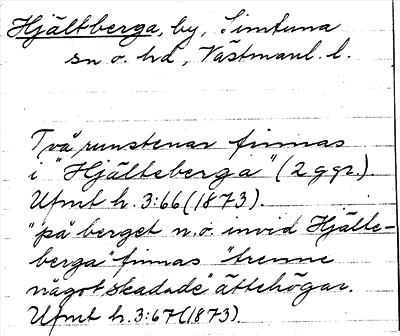 Hjältberga, by, Simtuna
sn o. hd, Västmanl. l.
Två runstenar finnas
i "Hjälteberga" (2 ggr.)
Ufmt h. 3:66 (1873).
"på berget n.o. invid Hjälte-
berga" finnas "trenne
något skadade" ättehögar.
Ufmt h. 3:67 (1873).